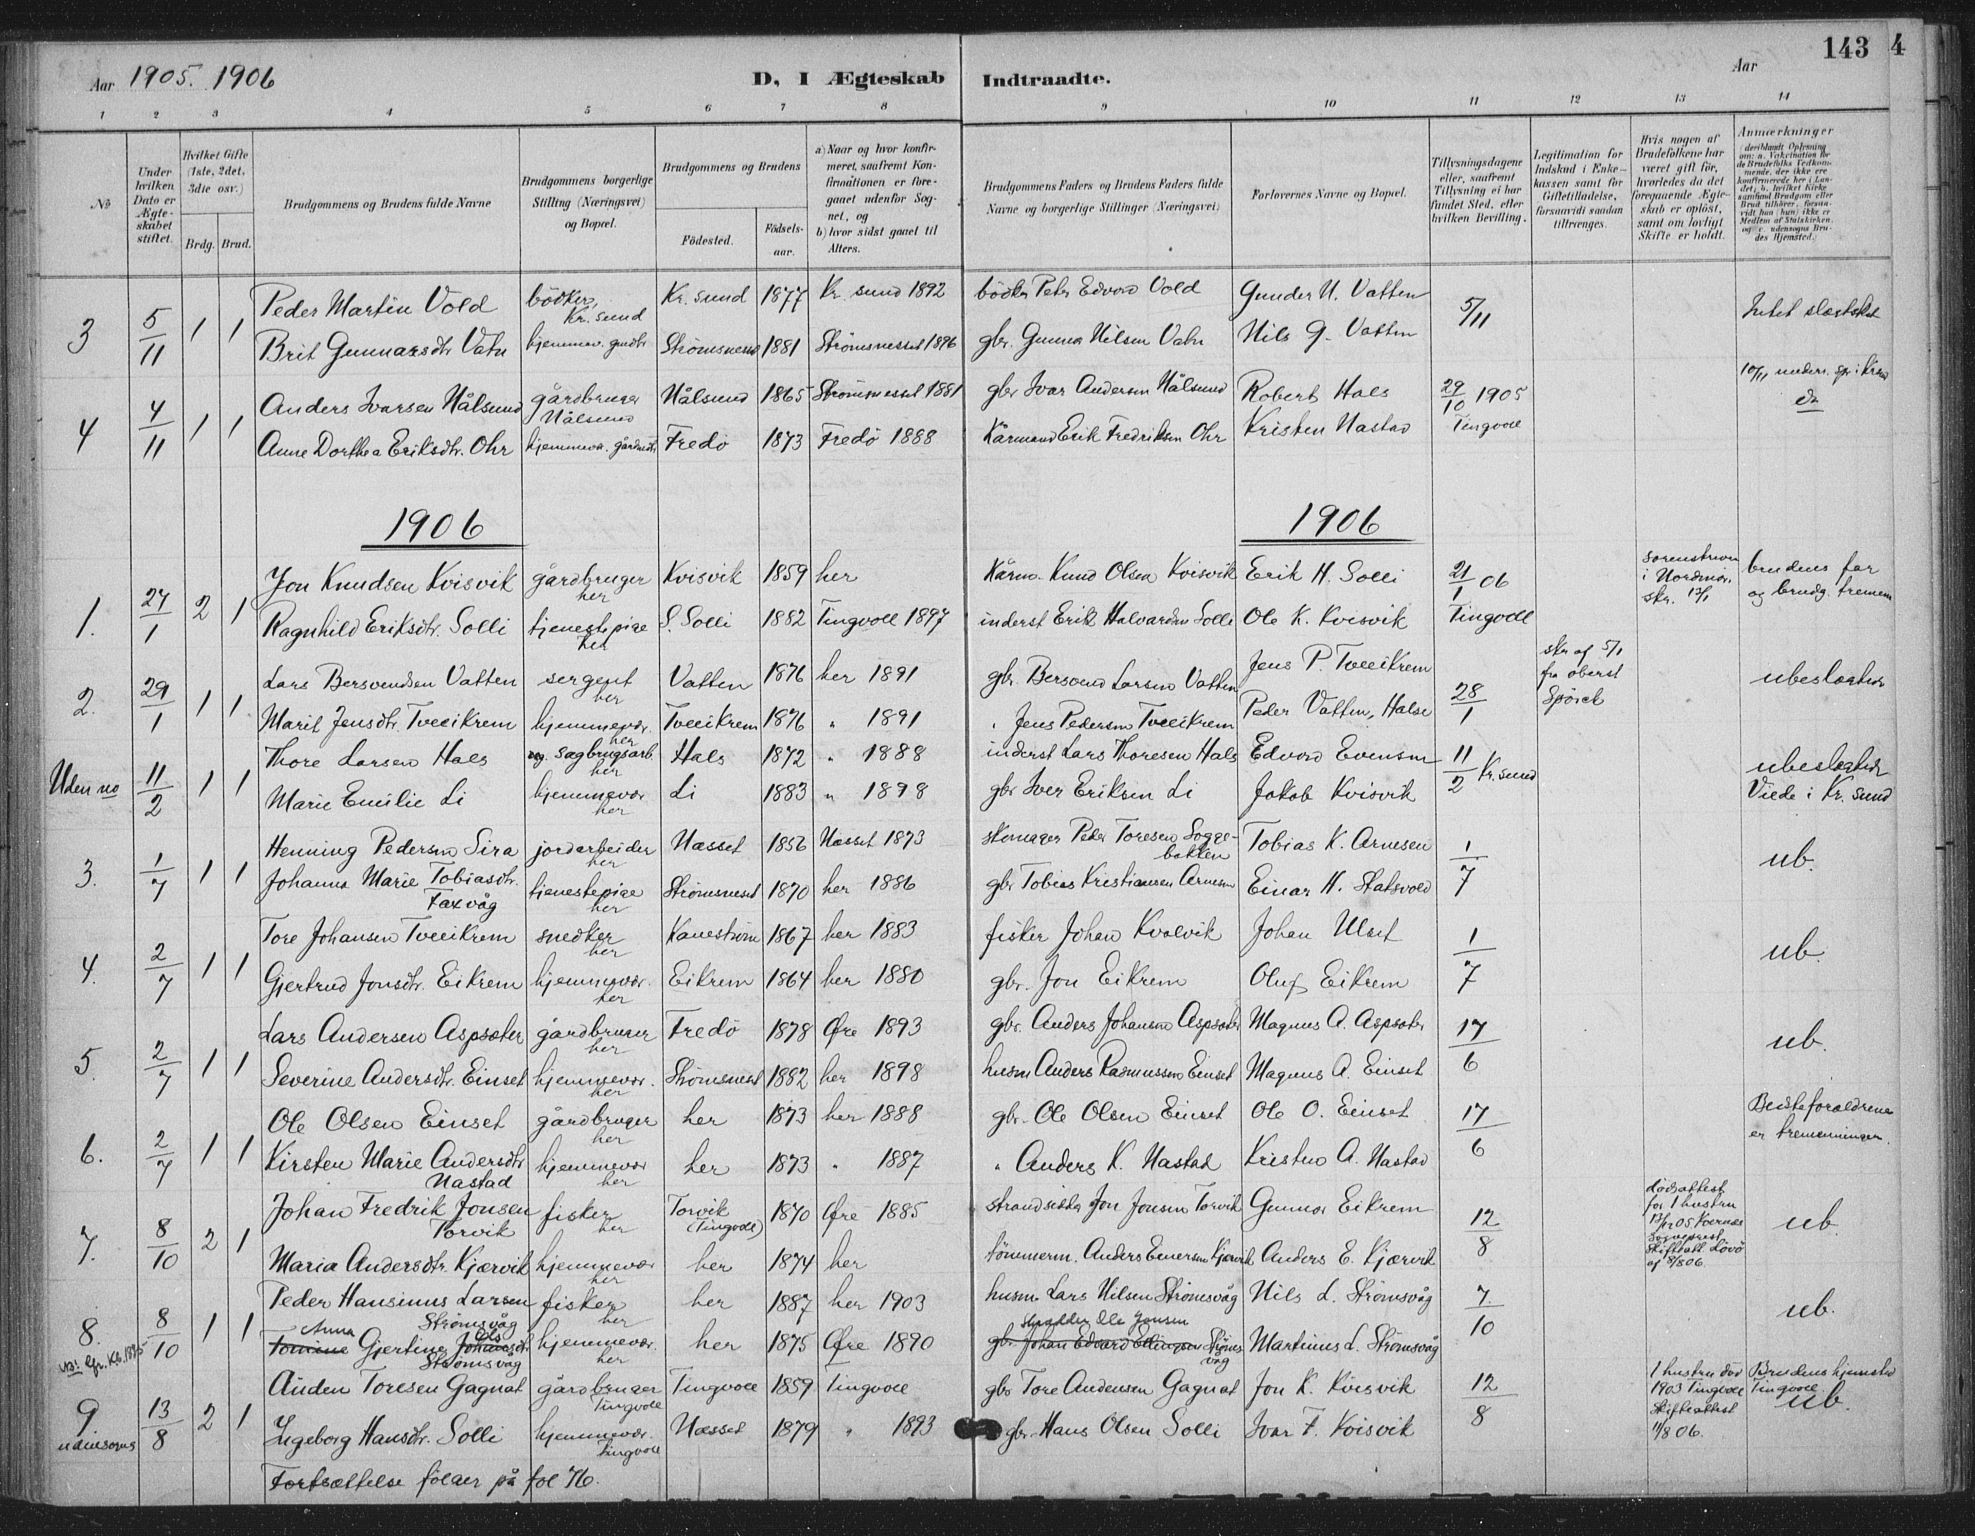 143 4
Aar 1905. 1906 D, I Ægteskab Indtraadte. Aar
1 2 3 4 5 6 7 8 9 10 11 12 13 14
No
Under hvilken Dato er Ægteskabet stiftet.
Hvilket Gifte (1ste, 2det, 3die osv.)
Brdg. Brud.
Brudgommens og Brudens fulde Navne
Brudgommens borgerlige Stilling (Næringsvei) og Bopæl.
Brudgommens og Brudens
Fødested. Fødsels-aar.
a) Naar og hvor konfirmeret, saafremt Konfirmationen er foregaaet udenfor Sognet, og
b) hvor sidst gaaet til Alters.
Brudgommens Faders og Brudens Faders fulde Navne og borgerlige Stillinger (Næringsvei)
Forlovernes Navne og Bopæl.
Tillysningsdagene eller, saafremt Tillysning ei har fundet Sted, efter hvilken Bevilling.
Legitimation for Indskud i Enkekassen samt for Giftetilladelse, forsaavidt saadan tiltrænges.
Hvis nogen af Brudefolkene har været gift før, hvorledes da det foregaaende Ægteskab er opløst, samt om lovligt Skifte er holdt.
Anmærkninger (deriblandt Oplysning om: a. Vakcination for de Brudefolks Vedkommende, der ikke ere konfirmerede her i Landet; b. hvilket Kirkesamfund Brudgom eller Brud tilhører, forsaavidt han (hun) ikke er Medlem af Statskirken, og c. udensogns Brudes Hjemsted.)
3 5/11 1 1 Peder Martin Vold bødker, Kr. sund Kr. sund 1877 Kr. sund 1892 bødker Peter Edvard Vold Gunder N. Vatten 5/11 Intet slægtskab
Brit Gunnarsdtr. Vatn hjemmev. gmdtr Strømsneset 1881 Strømsnesset 1896 gbr. Gunnar Nilsen Vatn Nils G. Vatten
4 4/11 1 1 Anders Ivarsen Nålsund gårdbruger Nålsund Nålsund 1865 Strømsnesset 1881 gbr Ivar Andersen Nålsund Robert Hals 29/10 1905 Tingvoll do
Anne Dorthea Eriksdtr. Ohr hjemmev. Fredø 1873 Fredø 1888 Kårmand Erik Fredriksen Ohr Kristen Nastad
1906 1906
1. 27/1 2 1 Jon Knudsen Kvisvik gårdbruger her Kvisvik 1859 her Kårm. Knud Olsen Kvisvik Erik H. Solli 21/1 06 Tingvoll sorenskriver i Nordmør. skr. brudens far og brudg. tremen
Ragnhild Eriksdtr. Solli tjenestepige her S. Solli 1882 Tingvoll 1897 inderst Erik Halvardsen Solli Ole K. Kvisvik
2. 29/1 1 1 Lars Bersvendsen Vatten sergent her Vatten 1876 her 1891 gbr. Bersvend Larsen Vatten Jens P. Tveeikrem 28/1 skr af 5/1 fra oberst Spørck ubeslægtede
Marit Jensdtr. Tveeikrem hjemmevær. her Tveeikrem 1876 " 1891 " Jens Pedersen Tveeikrem Peder Vatten, Halse
Uden no 11/2 1 1 Thore Larsen Hals sagbrugsarb. her Hals 1872 " 1888 inderst Lars Thoresen Hals Edvard Evensen 11/2 Kr. sund ubeslægtede Viede i Kr. sund
Marie Emilie Li hjemmevær her Li 1883 " 1898 gbr Iver Eriksen Li Jakob Kvisvik
3. 1/7 1 1 Henning Pedersen Sira jordarbeider her Næsset 1856 Næsset 1873 skomager Peder Toresen Soggebakken Tobias K. Arnesen 1/7 ub.
Johanna Marie Tobiasdtr. Faxvåg tjenestepige her Strømsneset 1870 her 1886 gbr Tobias Kristiansen Arnesen Einar H. Statsvold
4. 2/7 1 1 Tore Johansen Tveeikrem snedker her Kanestrøm 1867 her 1883 fisker Johan Kvalvik Johan Ulset 1/7 ub.
Gjertrud Jonsdtr. Eikrem hjemmevær. her Eikrem 1864 her 1880 gbr. Jon Eikrem Oluf Eikrem
5. 2/7 1 1 Lars Andersen Aspsæter gårdbruger her Fredø 1878 Øre 1893 gbr. Anders Johansen Aspsæter Magnus A. Aspsæter 17/6 ub.
Severine Andersdtr. Einset hjemmevær. her Strømsneset 1882 her 1898 husm Anders Rasmussen Einset Magnus A. Einset
6. 2/7 1 1 Ole Olsen Einset gårdbruger her her 1873 her 1888 gbr. Ole Olsen Einset Ole O. Einset 17/6 Bedsteforældrene er tremenninger.
Kirsten Marie Andersdtr Nastad hjemmevær her her 1873 " 1887 " Anders K. Nastad Kristen A. Nastad
7. 8/10 2 1 Johan Fredrik Jonsen Torvik fisker her Torvik (Tingvoll) 1870 Øre 1885 strandsidder Jon Jonsen Torvik Gunnar Eikrem 12/8 Dødsattest for 1 hustru 05 Kvernes Sogneprest, skifteatt. Løvø af 8/8 06. ub.
Maria Andersdtr. Kjærvik hjemmevær her her 1874 her tømmerm. Anders Einersen Kjærvik Anders E. Kjærvik
8. 8/10 1 1 Peder Hansinus Larsen Strømsvåg fisker her her 1887 her 1903 husm Lars Nilsen Strømsvåg Nils L. Strømsvåg 7/10 ub.
NB! Kb. 1875 Anna Tomine Gjertine Johansdtr Ols Strømsvåg hjemmevær. her her 1875 Øre 1890 Ole Jonsen gbr Johan Edvard Ellingsen Strømsvåg Martinus L. Strømsvåg
9 udensogns 13/8 2 1 Auden Toresen Gagnat gårdbruger Tingvoll Tingvoll 1859 Tingvoll gbr Tore Andersen Gagnat Jon K. Kvisvik 12/8 1 hustru død 1903 Tingvoll Skifteattest 11/8 06. Brudens hjemsted Tingvoll ub.
Ingeborg Hansdtr. Solli hjemmevær. Tingvoll Næsset 1879 " 1893 gbr. Hans Olsen Solli Ivar F. Kvisvik
Fortsættelse følger på fol 76.